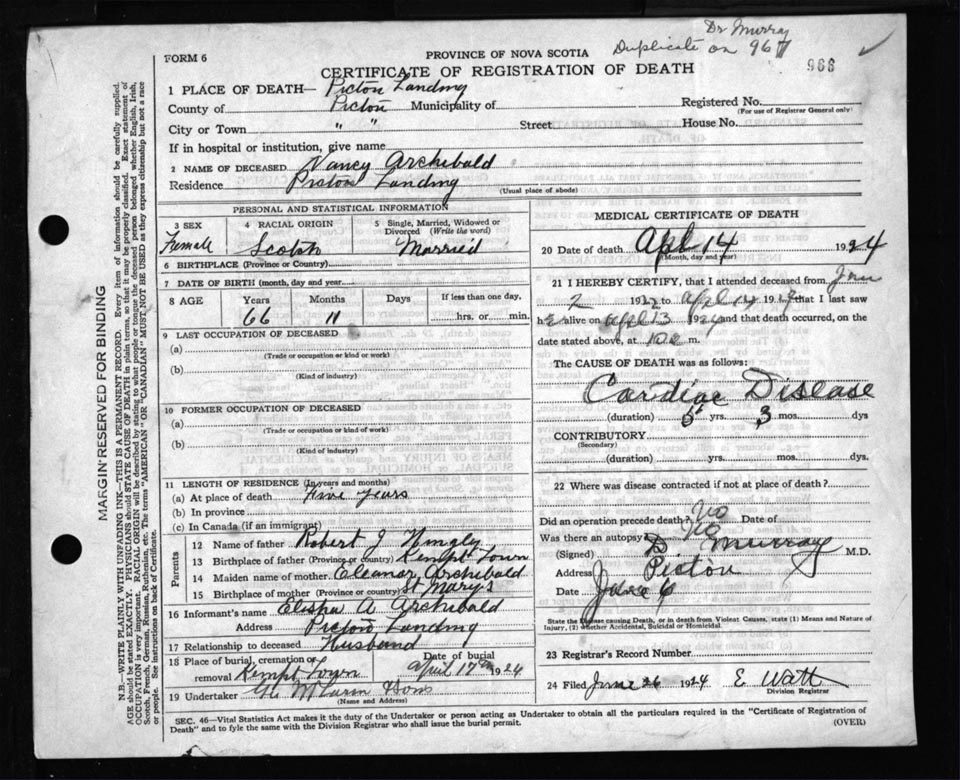 Dr Murray
Duplicate on 967
966
FORM 6
PROVINCE OF NOVA SCOTIA
CERTIFICATE OF REGISTRATION OF DEATH
1 PLACE OF DEATH— Pictou Landing
County of Pictou Municipality of
Registered No.
(For use of Registrar General only)
City or Town " " Street House No.
If in hospital or institution, give name
2 NAME OF DECEASED Nancy Archibald
Residence Pictou Landing
(Usual place of abode)
PERSONAL AND STATISTICAL INFORMATION
3 SEX 4 RACIAL ORIGIN 5 Single, Married, Widowed or
Divorced (Write the word)
Female Scotch Married
6 BIRTHPLACE (Province or Country)
7 DATE OF BIRTH (month, day and year
8 AGE Years Months Days If less than one day,
66 11 hrs. or min.
9 LAST OCCUPATION OF DECEASED
(a)
(Trade or occupation or kind or work)
(b)
(Kind of industry)
10 FORMER OCCUPATION OF DECEASED
(a)
(Trade or occupation or kind of work)
(b)
(Kind of industry)
11 LENGTH OF RESIDENCE (In years and months)
(a) At place of death Five years
(b) In province
(c) In Canada (if an immigrant)
Parents
12 Name of father Robert J
13 Birthplace of father (Province or country) Kempt Town
14 Maiden name of mother Eleanor Archibald
15 Birthplace of mother (Province or country) St Mary's
16 Informant's name Elisha A Archibald
Address Pictou Landing
17 Relationship to deceased Husband
18 Place of burial, cremation or Date of burial
removal Kempt Town April 17th 1924
19 Undertaker
(Name and Address)
MEDICAL CERTIFICATE OF DEATH
20 Date of death Apl 14 1924
(Month, day and year)
21 I HEREBY CERTIFY, that I attended deceased from
2 to that I last saw
alive on Apl 13 1924 and that death occurred, on
date stated above, at m.
The CAUSE OF DEATH was as follows:
Cardiac Disease
(duration) 5 yrs. 3 mos. dys
CONTRIBUTORY
(Secondary)
(duration) yrs. mos. dys
22 Where was disease contracted if not at place of death?
Did an operation precede death? No Date of
Was there an autopsy No
(Signed) D Murray M.D.
Address Pictou
Date June 6
State the Disease causing Death, or in death from Violent Causes, state (1) Means and Nature of
Injury, (2) Whether Accidental, Suicidal or Homicidal.
23 Registrar's Record Number
24 Filed June 26 1924 E Watt
Division Registrar
SEC. 46—Vital Statistics Act makes it the duty of the Undertaker or person acting as Undertaker to obtain all the particulars required in the "Certificate of Registration of
Death" and to fyle the same with the Division Registrar who shall issue the burial permit.
(OVER)
MARGIN RESERVED FOR BINDING
N.B.—WRITE PLAINLY WITH UNFADING INK—THIS IS A PERMANENT RECORD. Every item of information should be carefully supplied.
AGE should be stated EXACTLY. PHYSICIANS should STATE CAUSE OF DEATH in plain terms, so that it may be properly classified. Exact statement of
OCCUPATION is very important. RACIAL ORIGIN will be described by stating to what people or tongue the deceased person belonged whether English, Irish,
Scotch, French, German, Russian, Ruthenian, etc. The terms "AMERICAN" OR "CANADIAN" MUST NOT BE USED as they express citizenship but not a race
or people. See instructions on back of Certificate.